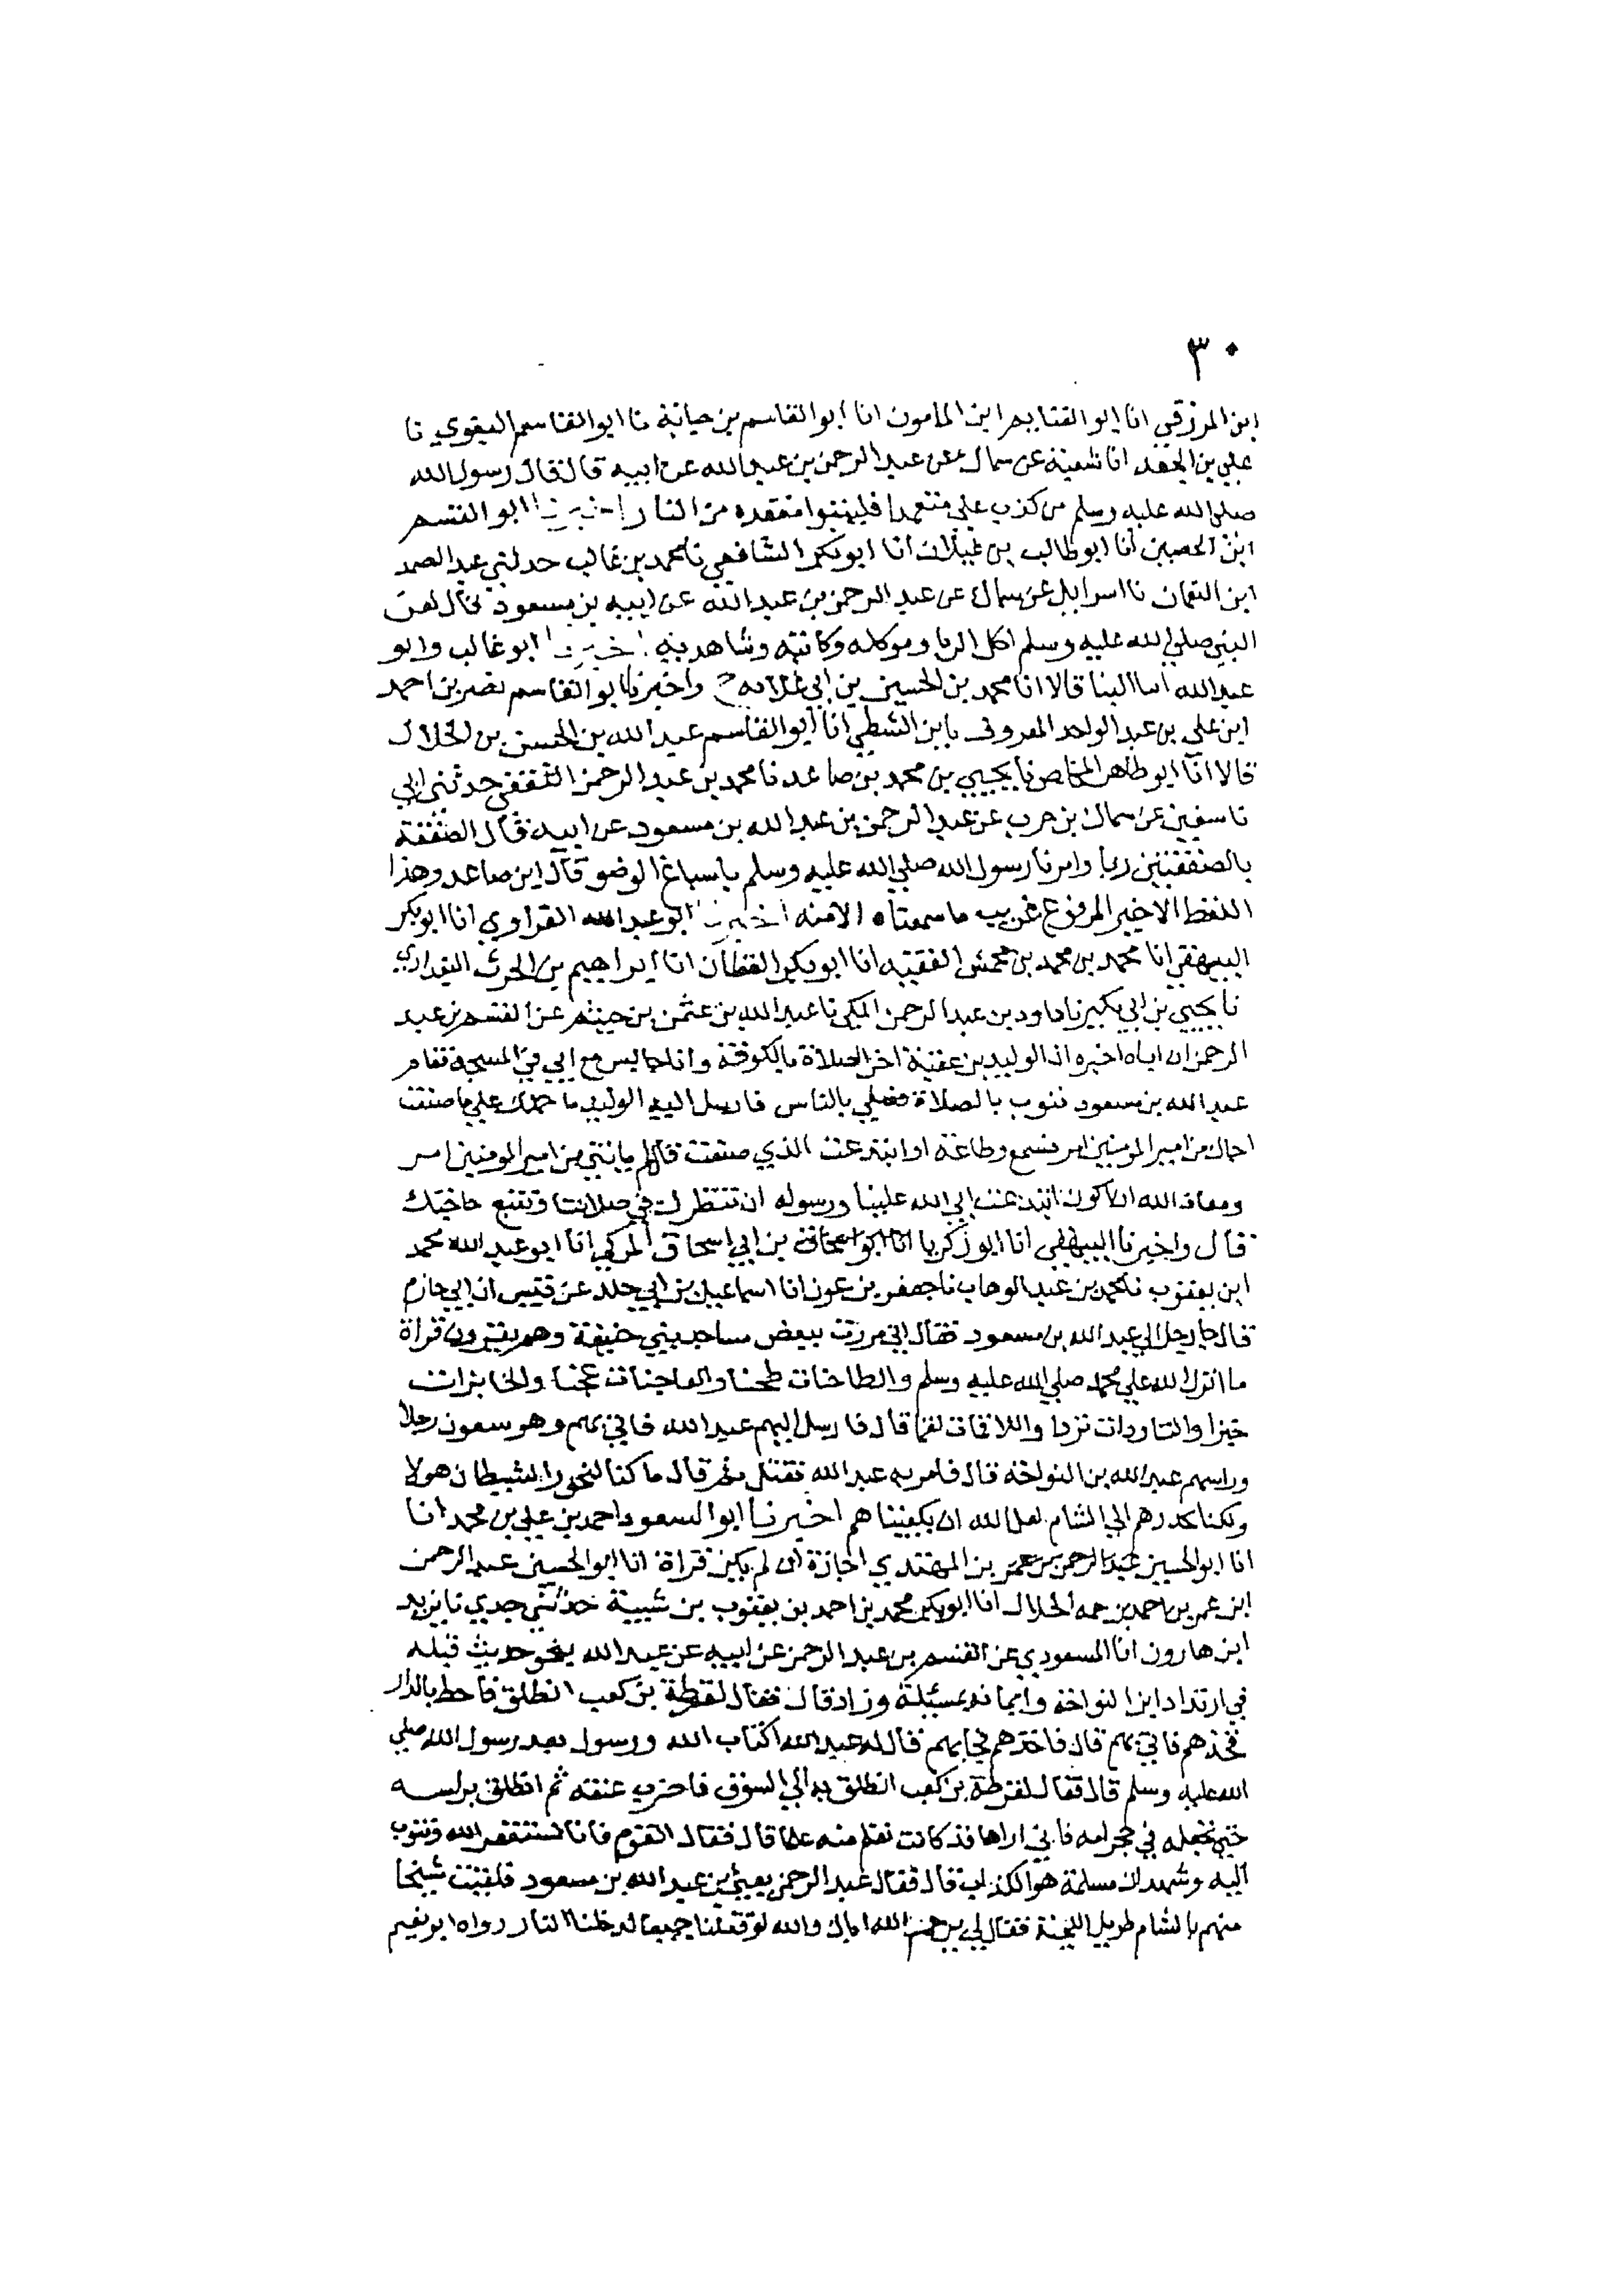 ٣٠
ابن المرزقي انا ابو الغنايم ابن المامون انا ابو القاسم بن حبابة نا ابو القاسم البغوي نا
علي بن الجعد انا شعبة عن سماك عن عبد الرحمن بن عبد الله عن ابيه قال قال رسول الله
صلي الله عليه وسلم من كذب علي متعمدا فليتبوا مقعده من النار اخبرنا ابو القسم
ابن الحصين انا ابو طالب بن غيلان انا ابو بكر الشافعي نا محمد بن غالب حدثني عبد الصمد
ابن النعمان نا اسرايل عن سماك عن عبد الرحمن بن عبد الله عن ابيه بن مسعود قال لعن
النبي صلي الله عليه وسلم اكل الربا وموكله وكاتبه وشاهديه اخبرنا ابو غالب وابو
عبد الله ابنا البنا قالا انا محمد بن الحسين بن ابي علانه ح واخبرنا ابو القاسم نصر بن احمد
ابن علي بن عبد الواحد المعروف بابن الشطي انا ابو القاسم عبد الله بن الحسن بن الخلال
قالا انا ابو طاهر المخلص نا يحيي بن محمد بن صاعد نا محمد بن عبد الرحمن الثقفي حدثني ابي
نا سفين عن سماك بن حرب عن عبد الرحمن بن عبد الله بن مسعود عن ابيه قال الصفقة
بالصفقتين ربا وامرنا رسول الله صلي الله عليه وسلم باسباغ الوضو قال ابن صاعد وهذا
اللفظ الاخير المرفوع غريب ما سمعناه الا منه اخبرنا ابو عبد الله الفراوي انا ابو بكر
البيهقي انا محمد بن محمد بن محمش الفقيه انا ابو بكر القطان انا ابراهيم بن الحرث البغدادي
نا يحيي بن ابي بكير نا داود بن عبد الرحمن المكي نا عبد الله بن عثمن بن خيثم عن القسم بن عبد
الرحمن ان اباه اخبره ان الوليد بن عقبة اخر الصلاة بالكوفة وانا جالس مع ابي في المسجد فقام
عبد الله بن مسعود فثوب بالصلاة فصلي بالناس فارسل اليه الوليد ما حملك علي ما صنعت
اجاك من امير المومنين امر فسمع وطاعة او ابتدعت الذي صنعت قال لم ياتني من امير المومنين امر
ومعاذ الله ان اكون ابتدعت ابي الله علينا ورسوله ان ننتظرك في صلاتنا وتتبع حاجتك
قال واخبرنا البيهقي انا ابو زكريا بن ابي اسحاق المزكي انا ابو عبد الله محمد
ابن يعقوب نا محمد بن عبد الوهاب نا جعفر بن عون انا اسماعيل بن ابي خلد عن قيس ابن ابي حازم
قال جا رجل الي عبد الله بن مسعود فقال اني مررت ببعض مساجد بني حنيفة وهم يقرون قراة
ما انزل الله علي محمد صلي الله عليه وسلم والطاحنات طحنا والعاجنات عجنا والخابزات
خبزا والثاردات ثردا واللاقمات لقما قال فارسل اليهم عبد الله فاتي بهم وهم سبعون رجلا
وراسهم عبد الله بن النواحه قال فامر به عبد الله فقتل ثم قال ما كنا الشيطان هولا
ولكنا نحدرهم الي الشام لعل الله ان يكفيناهم اخبرنا ابو السعود احمد بن علي بن محمد انا
انا ابو الحسين عبد الرحمن بن عمر بن المهتدي اجازة ان لم يكن قراة انا ابو الحسين عبد الرحمن
ابن عمر بن احمد بن حمه الخلال انا ابو بكر محمد بن احمد بن يعقوب بن شيبة حدثني جدي نا يزيد
ابن هارون انا المسعودي عن القسم بن عبد الرحمن عن ابيه عن عبد الله بنحو حديث قبله
في ارتداد ابن النواحة وايمانه بمسيلمة وزاد قال فقال لقرظة بن كعب انطلق فاحط بالدار
فخذهم فاتي بهم قال فاخذهم فجا بهم فقال له عبد الله اكتاب الله ورسول بعد رسول الله صلي
الله عليه وسلم قال فقال لقرظة بن كعب انطلق به الي السوق فاضرب عنقه ثم انطلق براسه
حتي تجعله في حجر امه فاني اراها قد كانت تعلم منه علما قال فقال القوم فانا نستغفر الله ونتوب
اليه ونشهد ان مسيلمة هو الكذاب قال فقال عبد الرحمن يعني بن عبد الله بن مسعود فلقيت شيخا
منهم بالشام طويل اللحية فقال لي يرحم الله اباك والله لو قتلنا جميعا لدخلنا النار رواه ابو نعيم